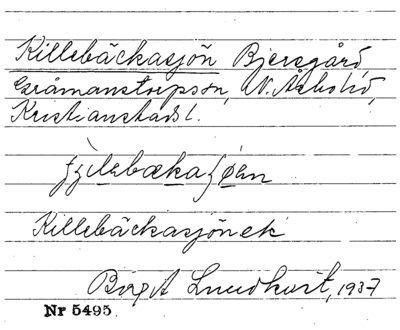 Killebäckasjön Bjersgård
Gråmanstorpssn, N. Åsbohd,
Kristianstads l.
Killebäckasjönek
Birgit Lundkvist, 1937
Nr 5495.